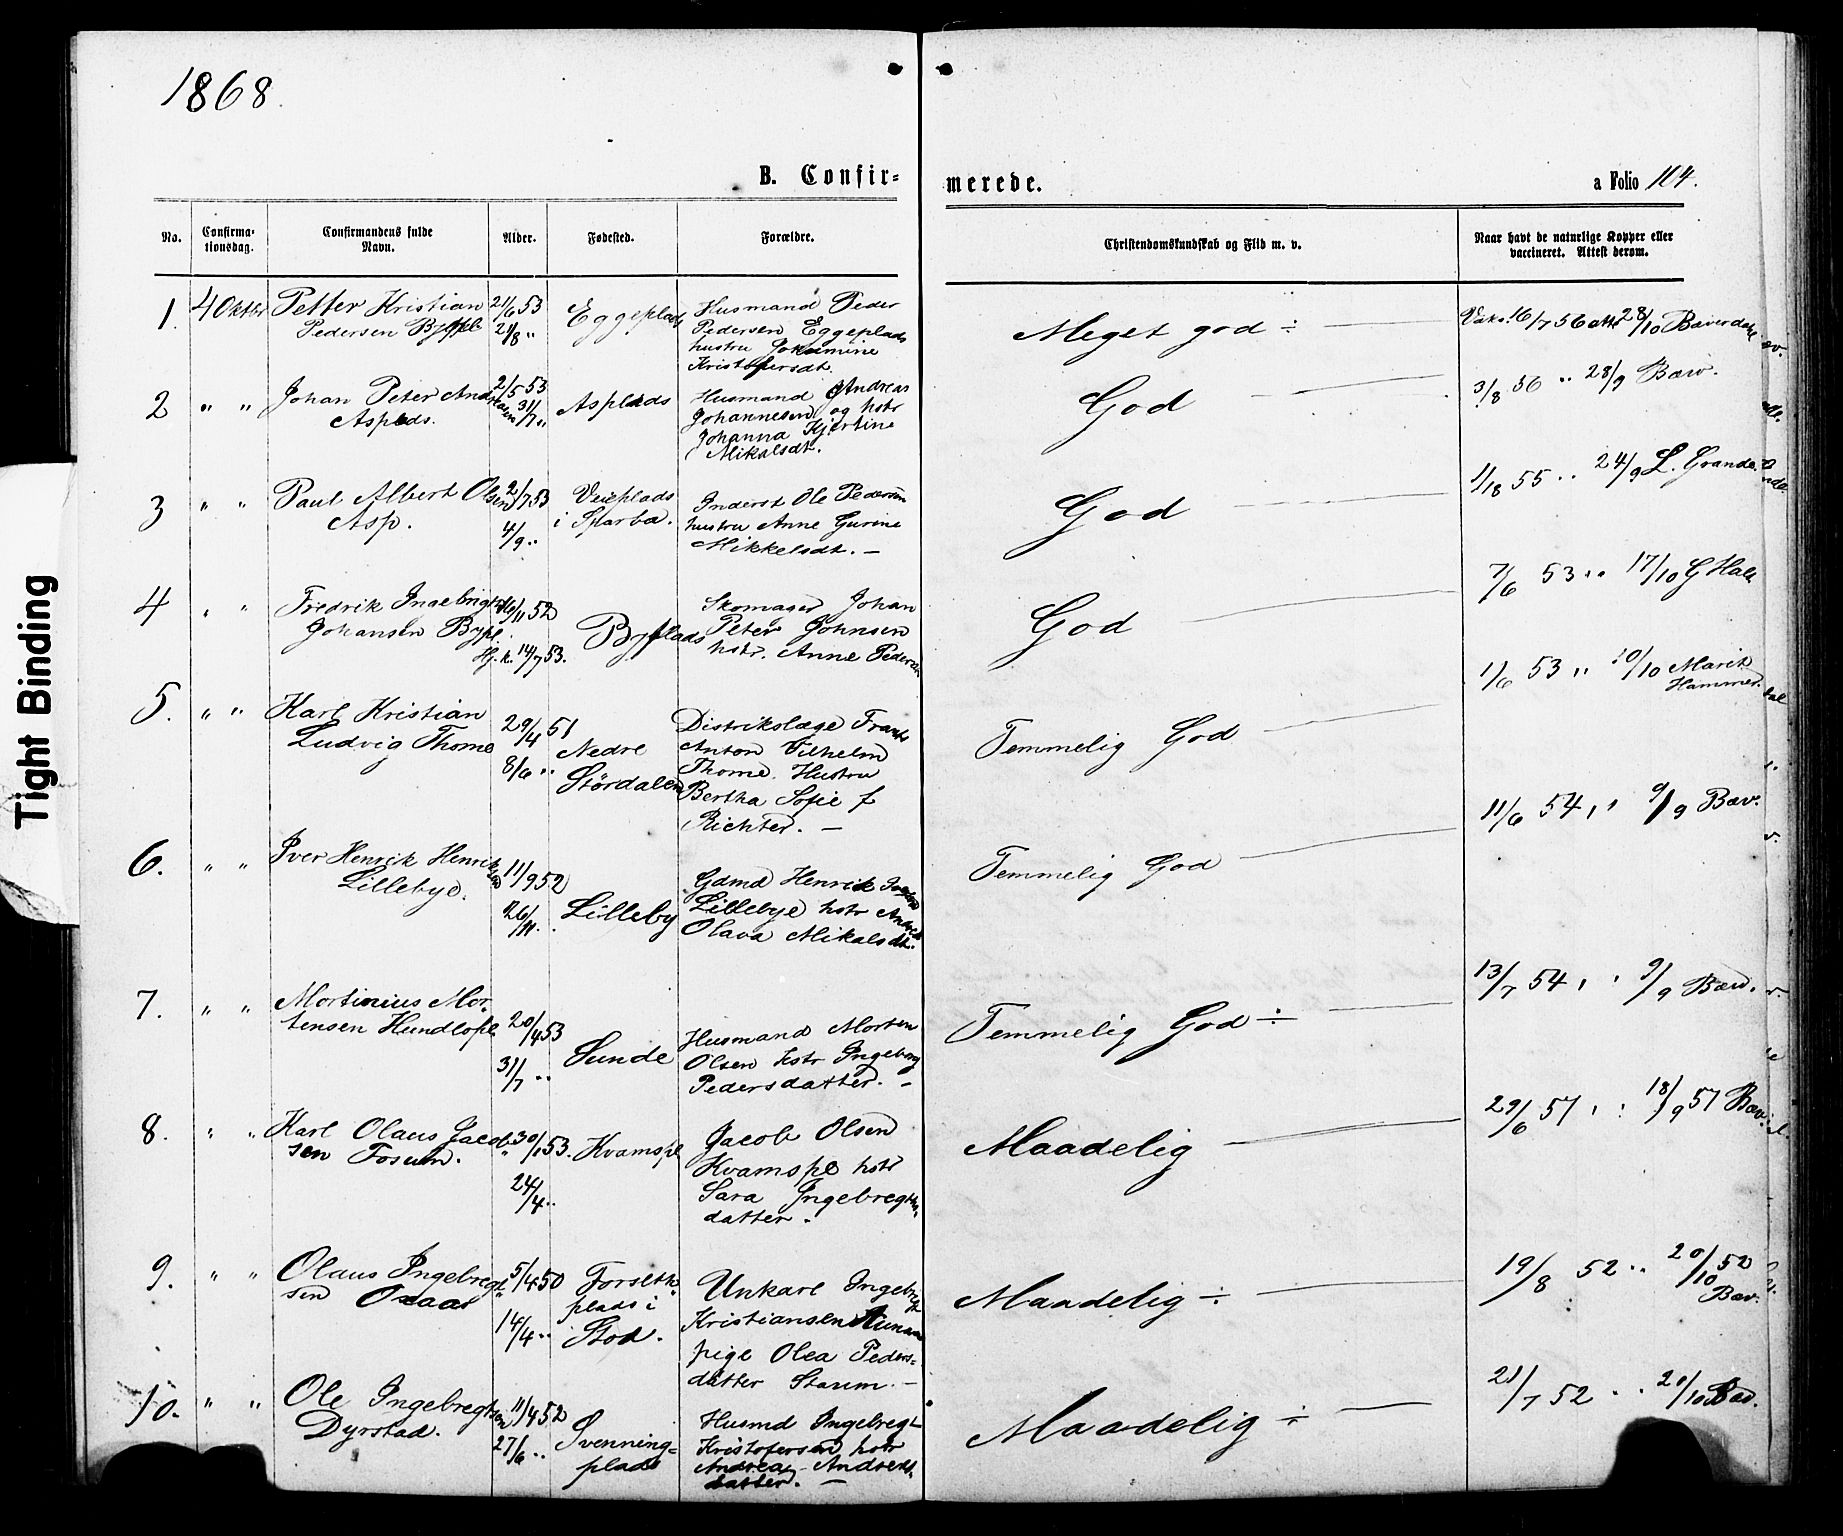 1868.
B. Confir=
merede.
a Folio 104.
No.
Confirma-
tionsdag.
Confirmandens fulde
Navn.
Alder.
Fødested.
Forældre.
Christendomskundskab og Flid m. v.
Naar havt de naturlige Kopper eller
vaccineret. Attest derom.
1. 4 Oktbr Petter Kristian
Pedersen Bypl.
21/6 53
21/8 "
Eggeplads
Husmand Peder
Pedersen Eggeplads
hustru
Kristofersdt.
Meget god ÷
Vaks. 16/7 56 att. 28/10 Bæverdahl
2 " " Johan Peter Andreasen
Asplads.
2/5 53
31/7 "
Asplads
Husmand Andreas
Johannesen og hstr
Johanna Kjerstine
Mikalsdt.
God
3/8 56 " 28/9 Bæv.
3 " " Paul Albert Olsen
Asp.
2/7 53
4/9 "
Veieplads
i Sparbu.
Inderst Ole Pedersen
hustru Anne Gurine
Mikkelsdt. —
God
55 " 24/9 L. Grande.
4 " " Fredrik Ingebrigt
Johansen Bypl.
52
Hj. k. 14/7 53.
Byplads
Skomager Johan
Peter Johnsen
hstr. Anne Pedersdt
God
7/6 53 " 17/10 G Halle
5. " " Karl Kristian
Ludvig Thome
29/4 51
8/6 "
Nedre
Stördalen
Distriktslæge Frants
Anton Vilhelm
Thome. Hustru
Bertha Sofie f
Richter. —
Temmelig God
1/6 53 " 10/10 Marit
Hammer.
6. " " Iver Henrik Henriksen
Lillebye.
11/9 52
26/11 .
Lilleby
Gdmd Henrik
Lillebye hstr
Olava Mikalsdt.
Temmelig God
11/6 54 " 9/9 Bæv.
7. " " Mortinius Mor-
tensen Hundlopl.
20/4 53
31/7 "
Sunde
Husmand Morten
Olsen hstr Ingeborg
Pedersdatter. —
Temmelig God ÷
13/7 54 " 9/9 Bæv.
8. " " Karl Olaus Jacob-
sen Fosum.
30/1 53.
24/4 "
Kvamspl
Jacob Olsen
Kvamspl hstr
Sara Ingebregts-
datter.
Maadelig
29/6 57 " 18/9 57 Bæv.
9. " " Olaus Ingebregt-
sen
5/4 50
14/4 "
Forseth-
plads i
Stod.
Unkarl Ingebregt
Kristiansen
pige Olea Peders=
datter Starem. —
Maadelig ÷
19/8 52 " 20/10 52
Bæv.
10. " " Ole Ingebregtsen
Dyrstad.
11/4 52
27/6 "
Svenning=
plads
Husmd Ingebregt
Kristofersen hstr
Andrea Andreas-
datter. —
Maadelig ÷
21/7 52 " 20/10 Bæv.
Tight Binding